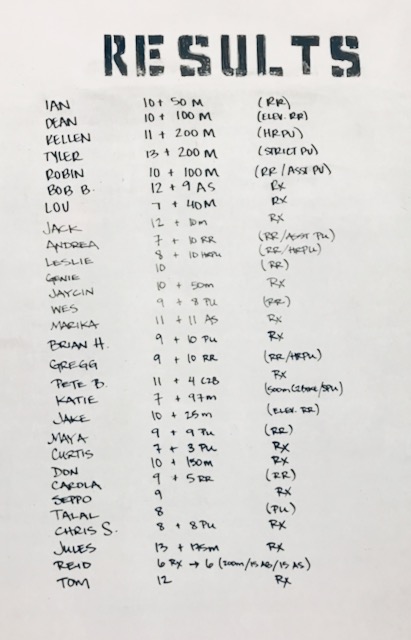 RESULTS
IAN 10 + 50 M (RR)
DEAN 10 + 100 M (ELEV. RR)
KELLEN 11 + 200 M (HRPU)
TYLER 13 + 200 M (STRICT PU)
ROBIN 10 + 100 M (RR / ASST PU)
BOB B. 12 + 9 AS Rx
LOU 7 + 40 M Rx
JACK 12 + 10m Rx
ANDREA 7 + 10 RR (RR/ASST PU)
LESLIE 8 + 10 HRPU (RR/HRPU)
GENIE 10 (RR)
JAYCIN 10 + 50m Rx
WES 9 + 8 PU (RR)
MARIKA 11 + 11 AS Rx
BRIAN H. 9 + 10 PU Rx
GREGG 9 + 10 RR (RR/HRPU)
PETE B. 11 + 4 C2B Rx
KATIE 7 + 97m (500m
JAKE 10 + 25m (ELEV. RR)
MAYA 9 + 9 PU (RR)
CURTIS 7 + 3 PU Rx
DON 10 + 150m Rx
CAROLA 9 + 5 RR (RR)
SEPPO 9 Rx
TALAL 8 (PU)
CHRIS S. 8 + 8 PU Rx
JULES 13 + 175m Rx
REID 6 Rx → 6 (200m/15 AS/15 AS)
TOM 12 Rx